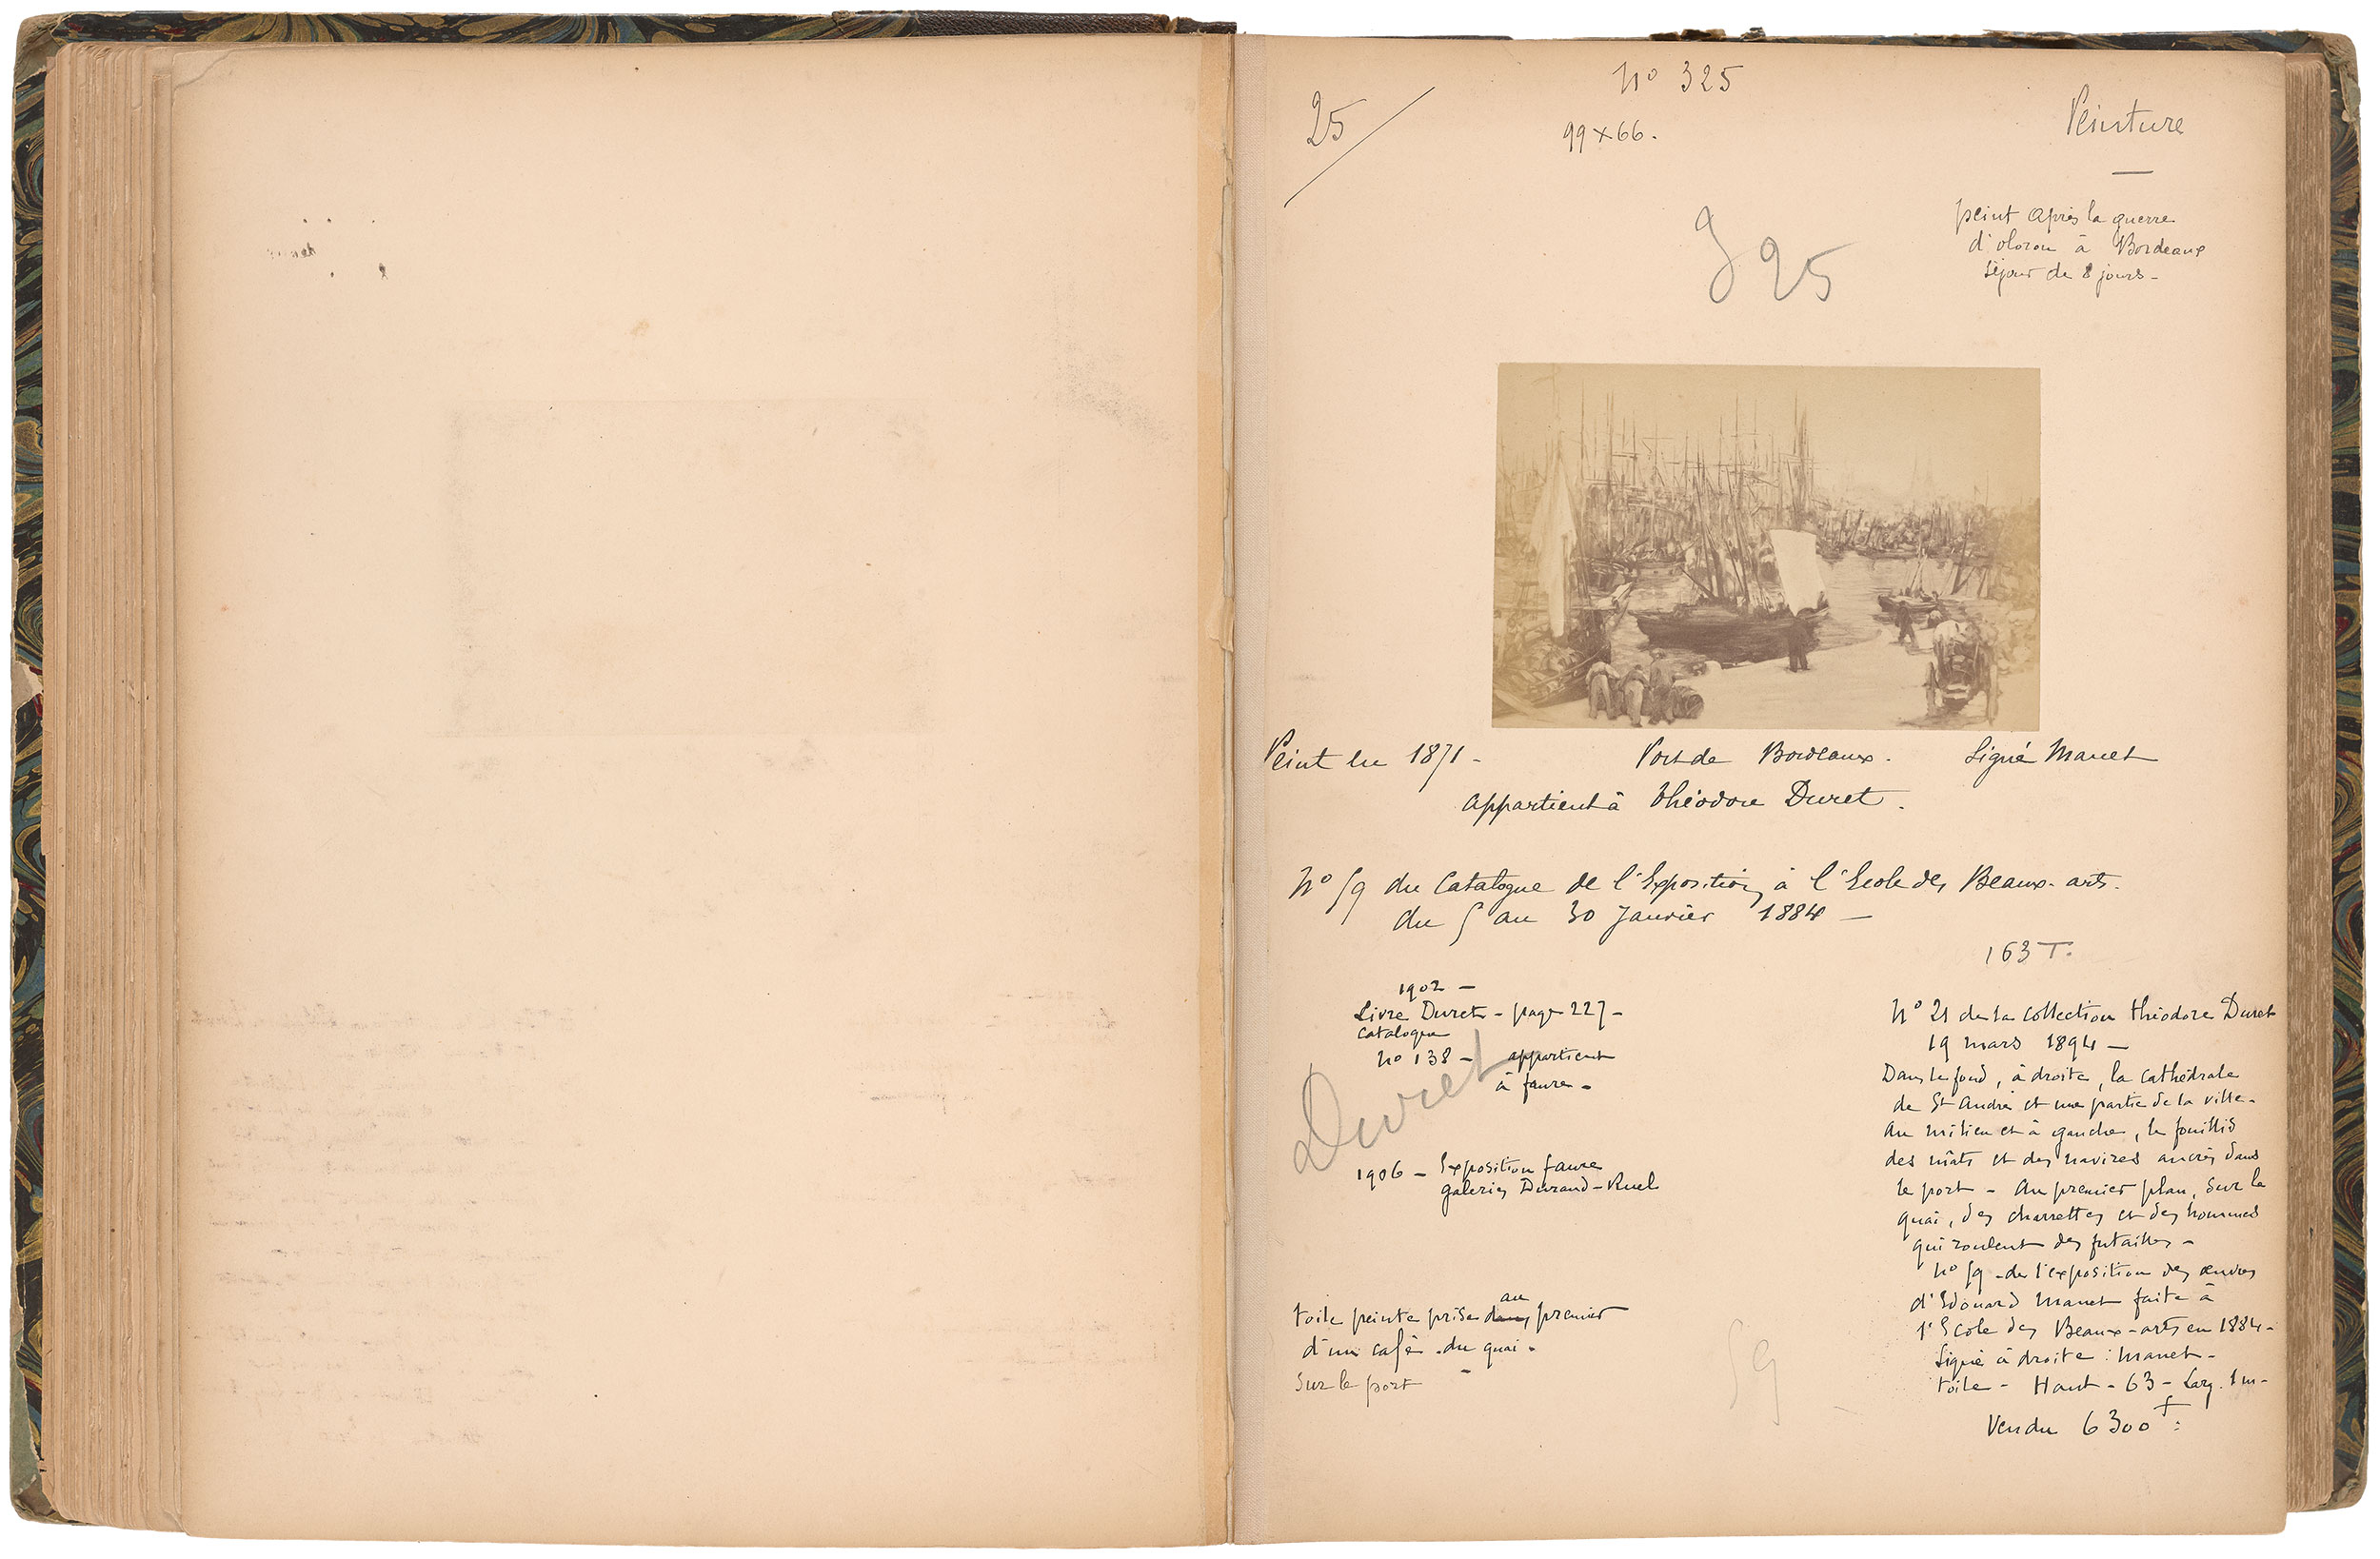 25
N° 325
99 x 66.
Peinture
peint après la guerre
d'oloron à Bordeaux
séjour de 8 jours -
325
Peint en 1871 - Port de Bordeaux. Signé Manet
appartient à théodore Duret.
N° 59 du Catalogue de l'Exposition à l'Ecole des Beaux-arts.
du 5 au 30 Janvier 1884 -
163 T.
1902 -
Livre Duret - page 227 -
Catalogue
N° 138 - appartient
à faure -
Duret
1906 - Exposition faure
galeries Durand-Ruel
toile peinte prise dans au premier
d'un café du quai.
Sur le port
N° 21 de la Collection théodore Duret
19 mars 1894 -
Dans le fond, à droite, la cathédrale
de St André et une partie de la ville -
Au milieu et à gauche, le fouillis
des mâts et des navires ancrés dans
le port - Au premier plan, sur le
quai, des charrettes et des hommes
qui roulent des futailles -
N° 59 - de l'exposition des œuvres
d'Edouard Manet faite à
l'Ecole des Beaux-arts en 1884 -
Signé à droite : Manet -
toile - Haut - 63 - Larg. 1 m -
Vendu 6300 f:
59